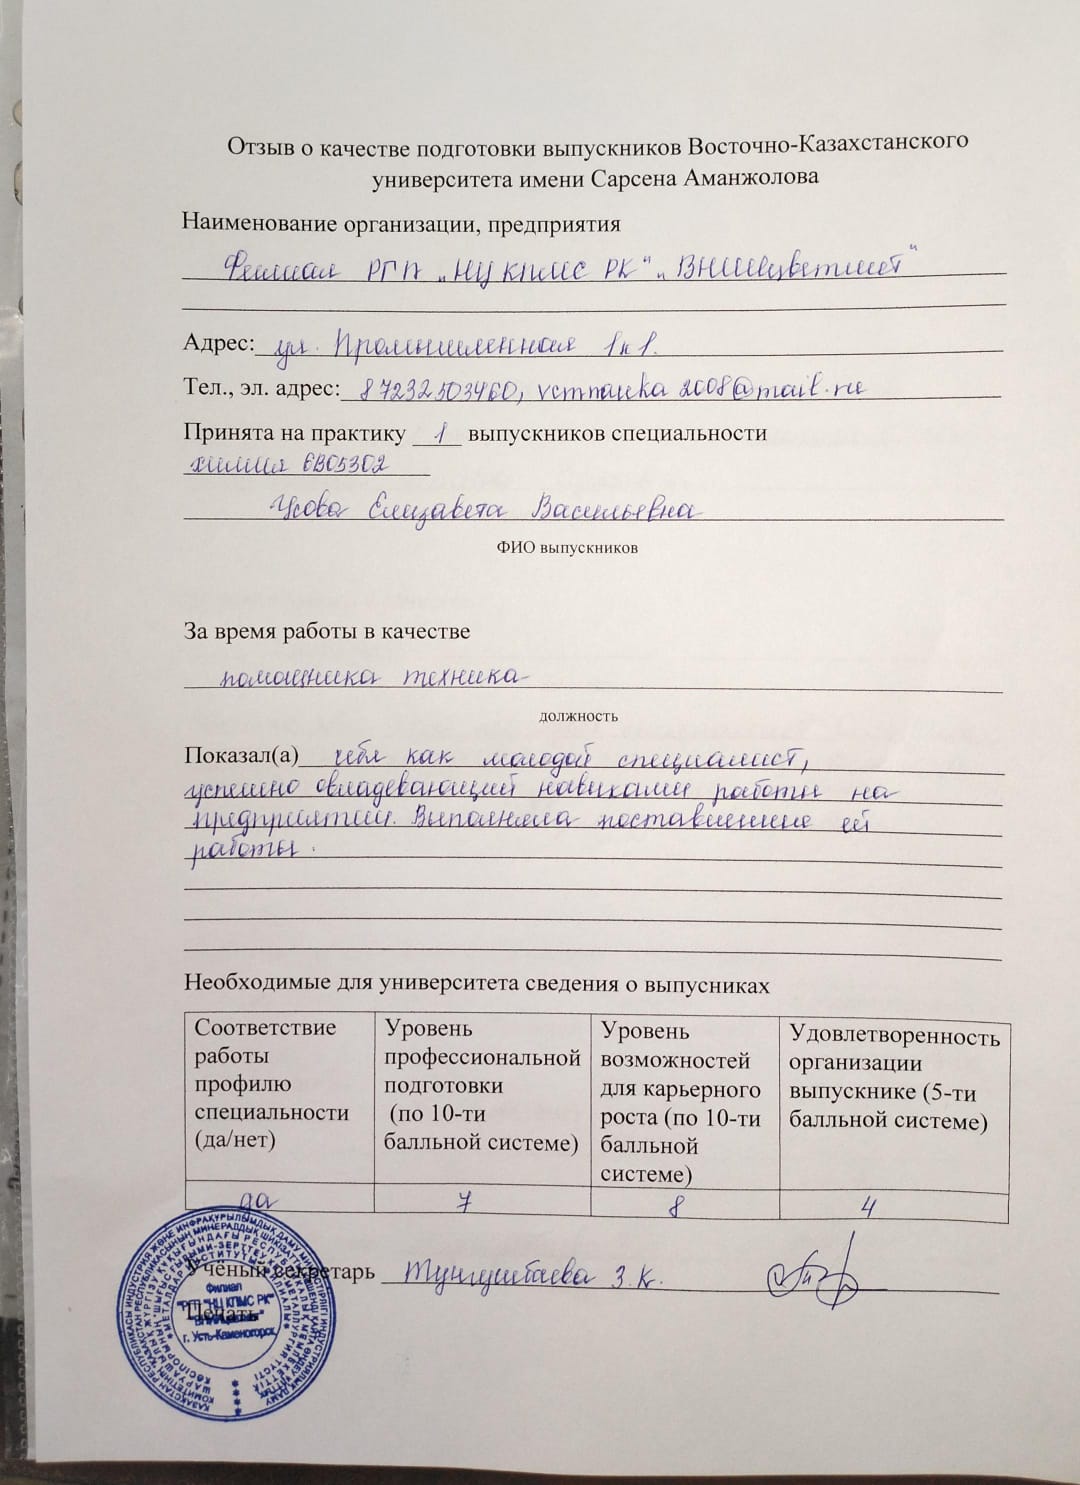 Отзыв о качестве подготовки выпускников Восточно-Казахстанского
университета имени Сарсена Аманжолова
Наименование организации, предприятия
Филиал РГП „НЦ КПМС РК“ „ВНИИцветмет“
Адрес: ул. Промышленная 1
Тел., эл. адрес: 87232503460, 2008@mail.ru
Принята на практику 1 выпускников специальности
химия 6В05302
Усова Елизавета Васильевна
ФИО выпускников
За время работы в качестве
помощника техника
должность
Показал(а) себя как молодой специалист,
успешно овладевающий навыками работы на
предприятии. Выполняла поставленные ей
работы.
Необходимые для университета сведения о выпусниках
Соответствие работы профилю специальности (да/нет)
Уровень профессиональной подготовки (по 10-ти балльной системе)
Уровень возможностей для карьерного роста (по 10-ти балльной системе)
Удовлетворенность организации выпускнике (5-ти балльной системе)
да 7 8 4
Учёный секретарь Тунгушбаева З.К.
Печать
Филиал
"РГП "НЦ КПМС РК"
"ВНИИцветмет"
г. Усть-Каменогорск